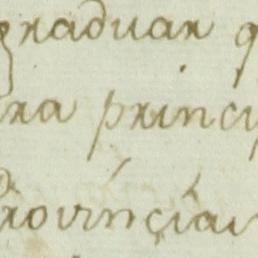 graduar q
ra princip
Provinçias